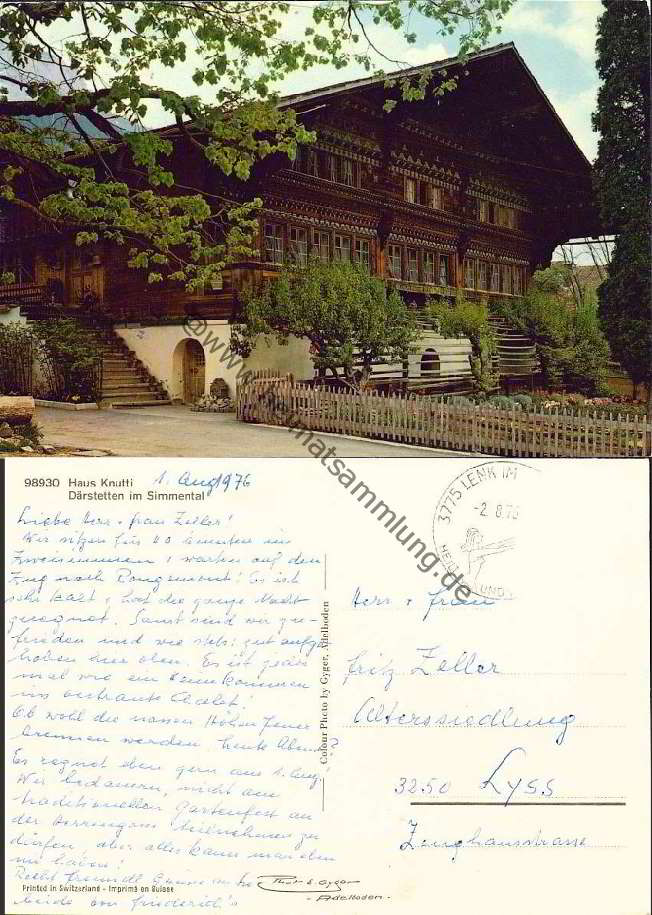 © www.heimatsammlung.de
98930 Haus Knutti
Därstetten im Simmental
1. Aug 1976
Liebe Herr + Frau Zeller!
Wir sitzen für 40 Minuten in
Zweisimmen + warten auf den
Zug nach Rougemont! Es ist
sehr kalt + hat die ganze Nacht
geregnet. Sonst sind wir zu-
frieden und wie stets gut aufge
hoben hier oben. Es ist jedes
mal wie ein heimkommen
ins vertraute Chalet!
Ob wohl die nassen Höhen feuer
brennen werden, heute Abend?
Es regnet eben gern am 1. Aug!
Wir bedauern, nicht am
traditionellen Gartenfest an
der teilnehmen zu
dürfen, aber alles kann man eben
nie haben!
Recht freundl. Grüsse an Sie
beide von
Printed in Switzerland - Imprimé en Suisse
Colour Photo by Gyger, Adelboden
Photo E. Gyger
- Adelboden -
3775 LENK IM
-2.8.76
Herr + Frau
Fritz Zeller
Alterssiedlung
3250 Lyss
Zeughausstrasse